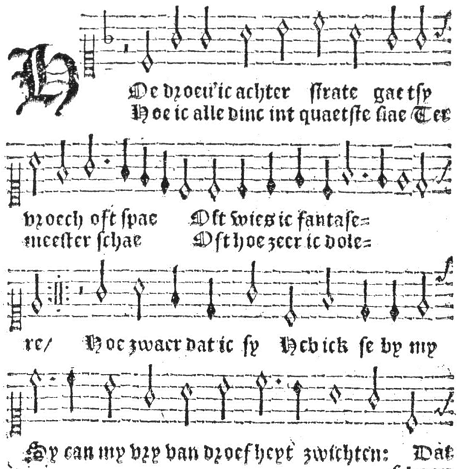 H
Oe droeu' ic achter strate gaet sy
Hoe ic alle dinc int quaetste slae Ter
vroech oft spae Oft wies ic fantase=
meester schae Oft hoe zeer ic dole=
re/ Hoe zwaer dat ic sy Heb ick se by my
Sy can my vry van droef heyt zwichten: Dat